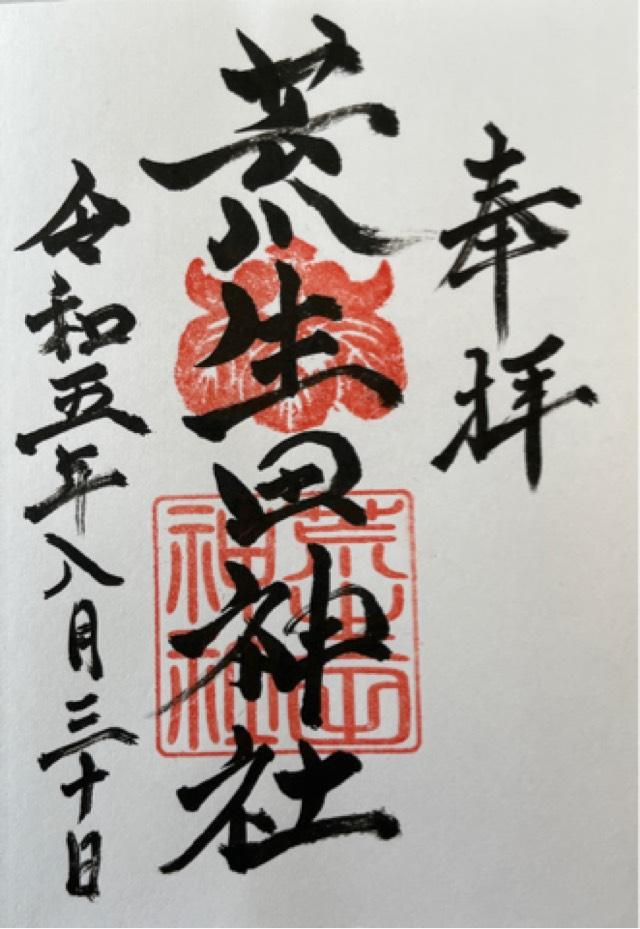 奉拝
荒生田神社
荒生田神社
令和五年八月三十日